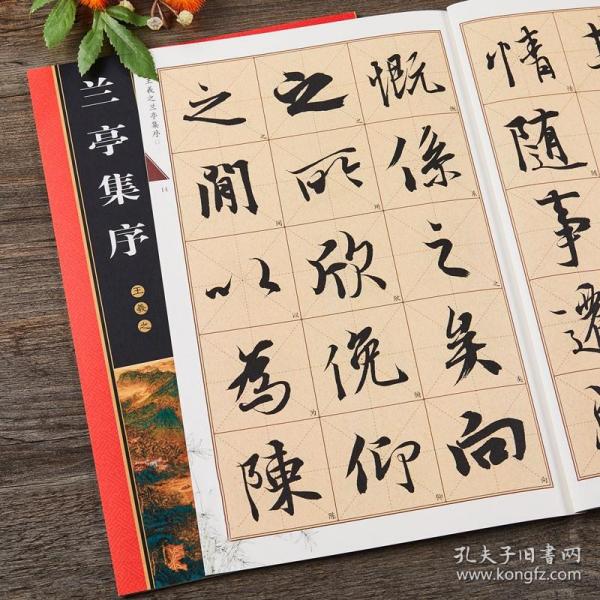 兰亭集序
王羲之
王羲之兰亭集序
14
情随事遷
慨係之矣向
之所欣俛仰
之間以為陳
孔夫子旧书网
www.kongfz.com